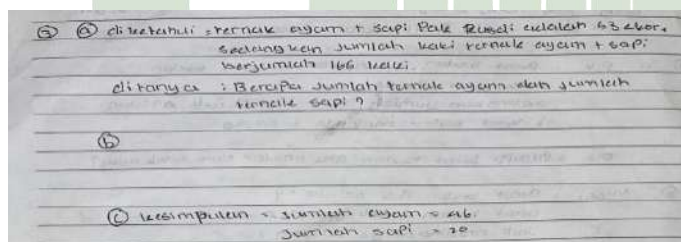 ③ ⓐ diketahui : ternak ayam + sapi Pak Rusdi adalah 63 ekor,
sedangkan jumlah kaki ternak ayam + sapi
berjumlah 166 kaki.
ditanya : Berapa jumlah ternak ayam dan jumlah
ternak sapi ?
ⓑ
ⓒ kesimpulan = jumlah ayam = 46.
jumlah sapi = 20